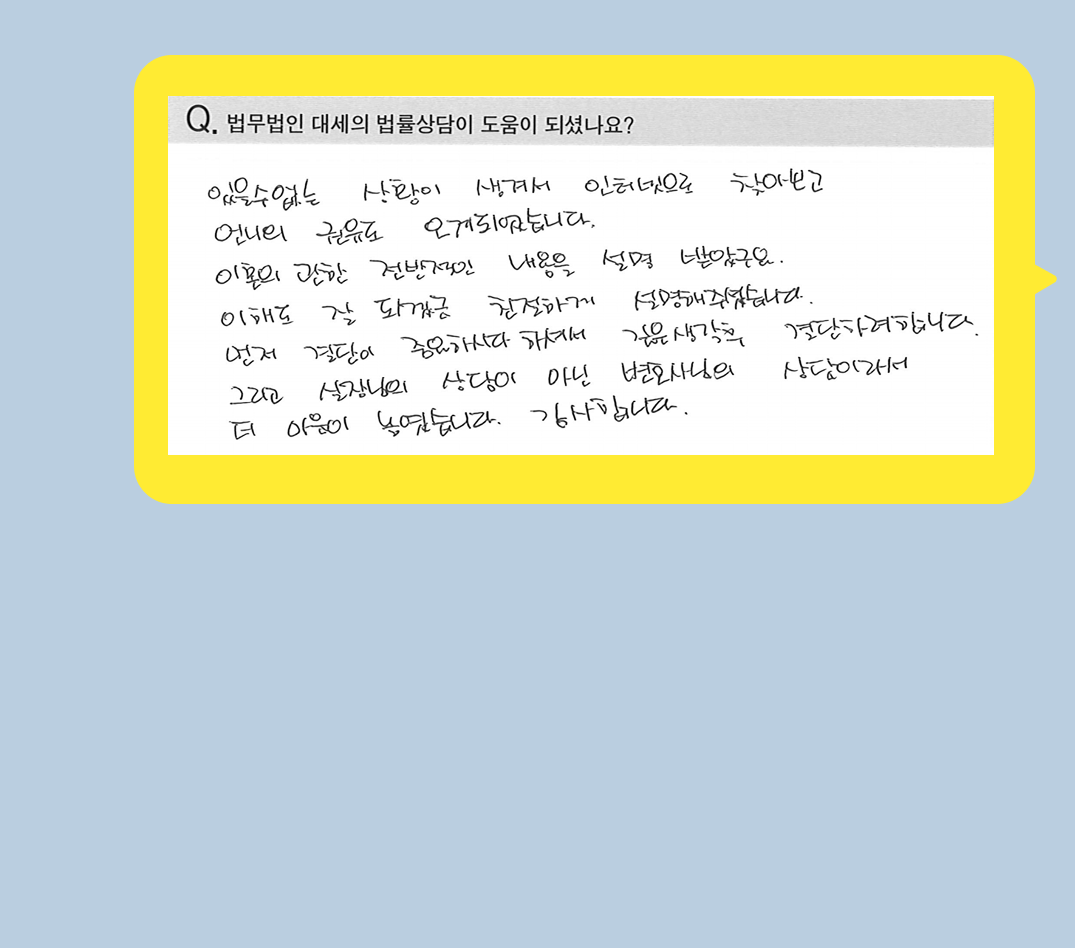 Q. 법무법인 대세의 법률상담이 도움이 되셨나요?
있을수없는 상황이 생겨서 인터넷으로 찾아보고
언니의 권유로 오게되었습니다.
이혼의 관한 전반적인 내용을 설명 받았구요.
이해도 잘 되게끔 친절하게 설명해주셨습니다.
먼저 결단이 중요하시다 하셔서 깊은생각후 결단하려합니다.
그리고 실장님의 상담이 아닌 변호사님의 상담이라서
더 마음이 놓였습니다. 감사합니다.